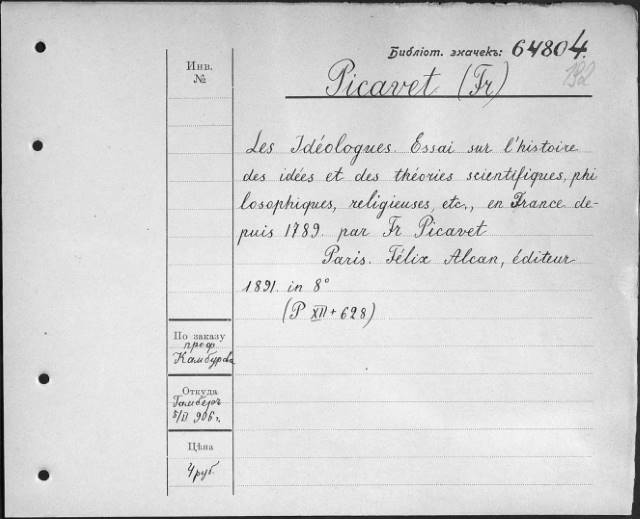 Библіот. значекъ: 64804.
192
Инв.
№
Picavet (Fr)
Les Idéologues. Essai sur l'histoire
des idées et des théories scientifiques, phi
losophiques, religieuses, etc., en France de-
puis 1789. par Fr Picavet
Paris. Félix Alcan, éditeur
1891. in 8°
(P XII + 628)
По заказу
проф.
Камбурова
Откуда
Гамберъ
5/II 906 г.
Цѣна
4 руб.